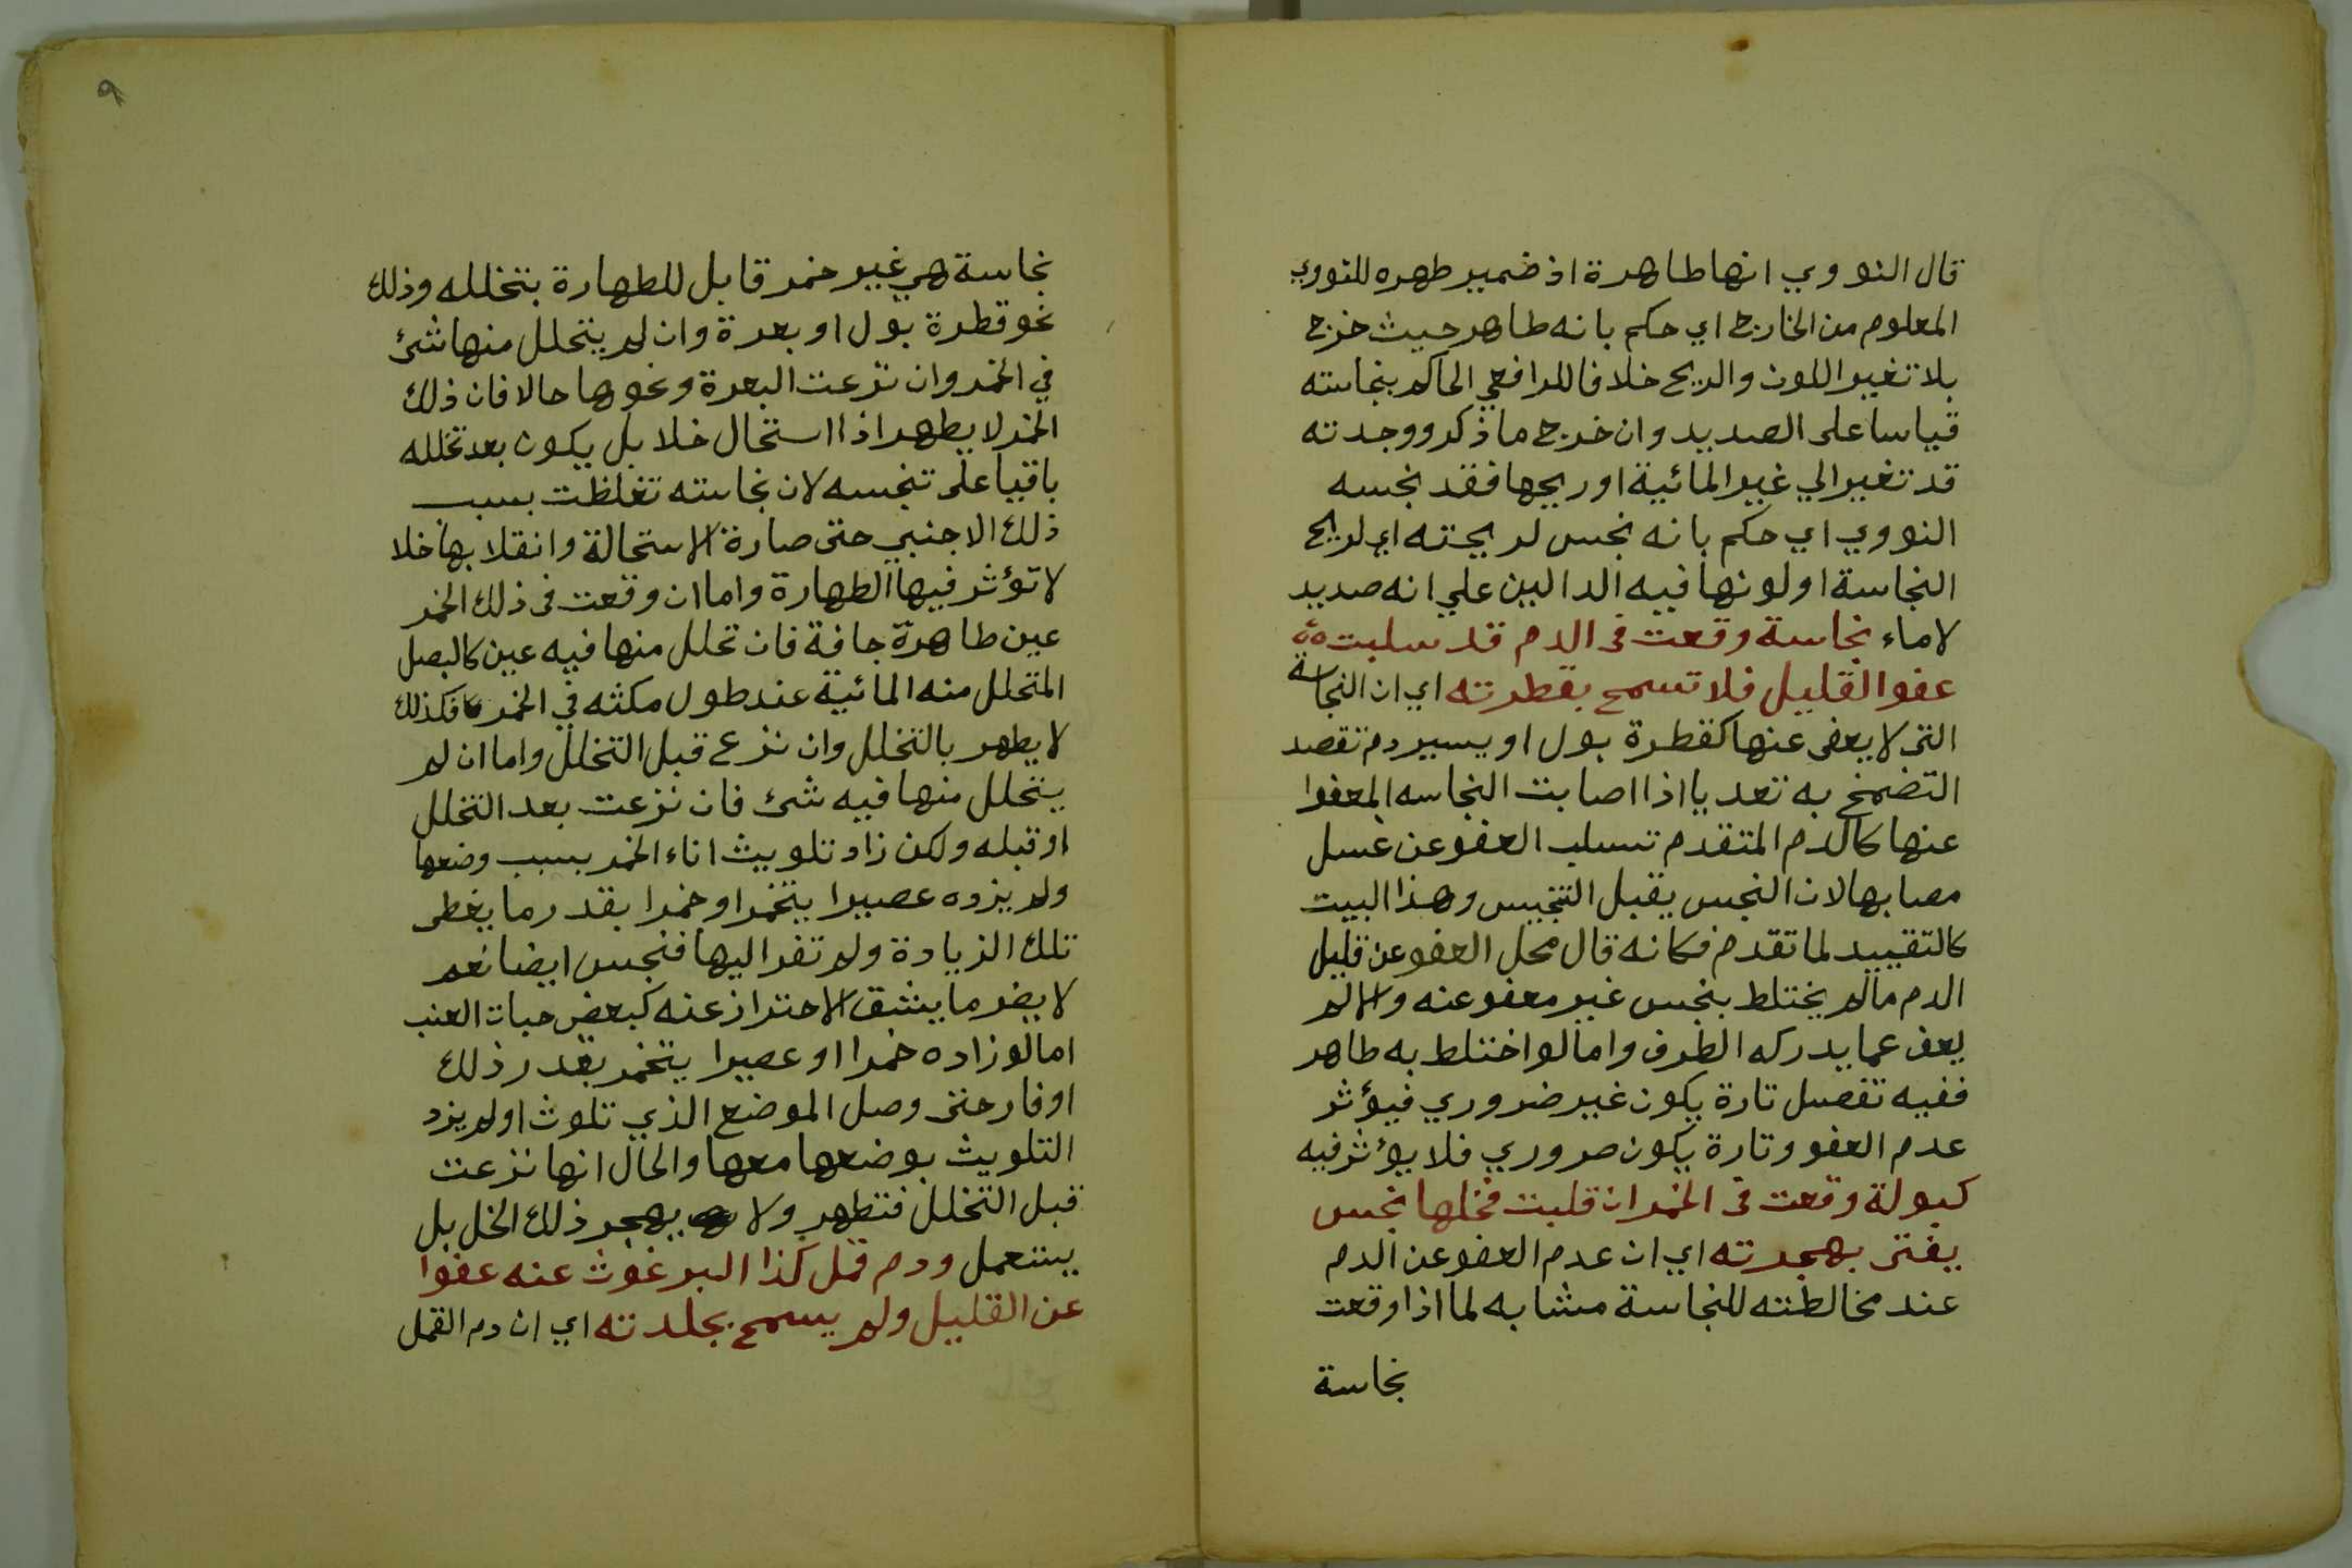 قال النووي انها طاهرة اذ ضمير طهره للنووي
المعلوم من الخارج اي حكم بانه طاهر حيث خرج
بلا تغير اللون والريح خلافا للرافعي الحاكم بنجاسته
قياسا على الصديد وان خرج ما ذكر ووجدته
قد تغير الي غير المائية او ريحها فقد نجسه
النووي اي حكم بانه نجس لريحته اي لريح
النجاسة او لونها فيه الدالين علي انه صديد
لا ماء نجاسة وقعت فى الدم قد سلبت
عفو القليل فلا تسمح بقطرته اي ان النجاسة
التى لا يعفى عنها كقطرة بول او يسير دم تقصد
التضمخ به تعديا اذا اصابت النجاسه المعفوا
عنها كالدم المتقدم تسلب العفو عن غسل
مصابها لان النجس يقبل التنجيس وهذا البيت
كالتقييد لما تقدم فكانه قال محل العفو عن قليل
الدم ما لم يختلط بنجس غير معفو عنه والا لم
يعف عما يدركه الطرف واما لو اختلط به طاهر
ففيه تفصل تارة يكون غير ضروري فيؤثر
عدم العفو وتارة يكون ضروري فلا يؤثر فيه
كبولة وقعت فى الخمر ان قلبت فخلها نجس
يفتى بهجرته اي ان عدم العفو عن الدم
عند مخالطته للنجاسة مشابه لما اذا وقعت
نجاسة
٩
نجاسة هي غير خمر قابل للطهارة بتخلله وذلك
نحو قطرة بول او بعرة وان لم يتحلل منها شئ
في الخمر وان نزعت البعرة ونحوها حالا فان ذلك
الخمر لا يطهر اذا استحال خلا بل يكون بعد تخلله
باقيا على تنجسه لان نجاسته تغلظت بسبب
ذلك الاجنبي حتى صارة الاستحالة وانقلابها خلا
لا تؤثر فيها الطهارة واما ان وقعت فى ذلك الخمر
عين طاهرة جافة فان تحلل منها فيه عين كالبصل
المتحلل منه المائية عند طول مكثه في الخمر فكذلك
لا يطهر بالتخلل وان نزع قبل التخلل واما ان لم
يتحلل منها فيه شئ فان نزعت بعد التخلل
او قبله ولكن زاد تلويث اناء الخمر بسبب وضعها
ولم يزده عصيرا يتخمر او خمرا بقدر ما يغطى
تلك الزيادة ولم تفر اليها فنجس ايضا نعم
لا يضر ما ينشق الاحتراز عنه كبعض حبات العنب
اما لو زاده خمرا او عصيرا يتخمر بقدر ذلك
او فار حتى وصل الموضع الذي تلوث او لم يزد
التلويث بوضعها معها والحال انها نزعت
قبل التخلل فتطهر ولا يهجر ذلك الخل بل
يستعمل ودم قمل كذا البرغوث عنه عفوا
عن القليل ولم يسمح بجلدته اي ان دم القمل